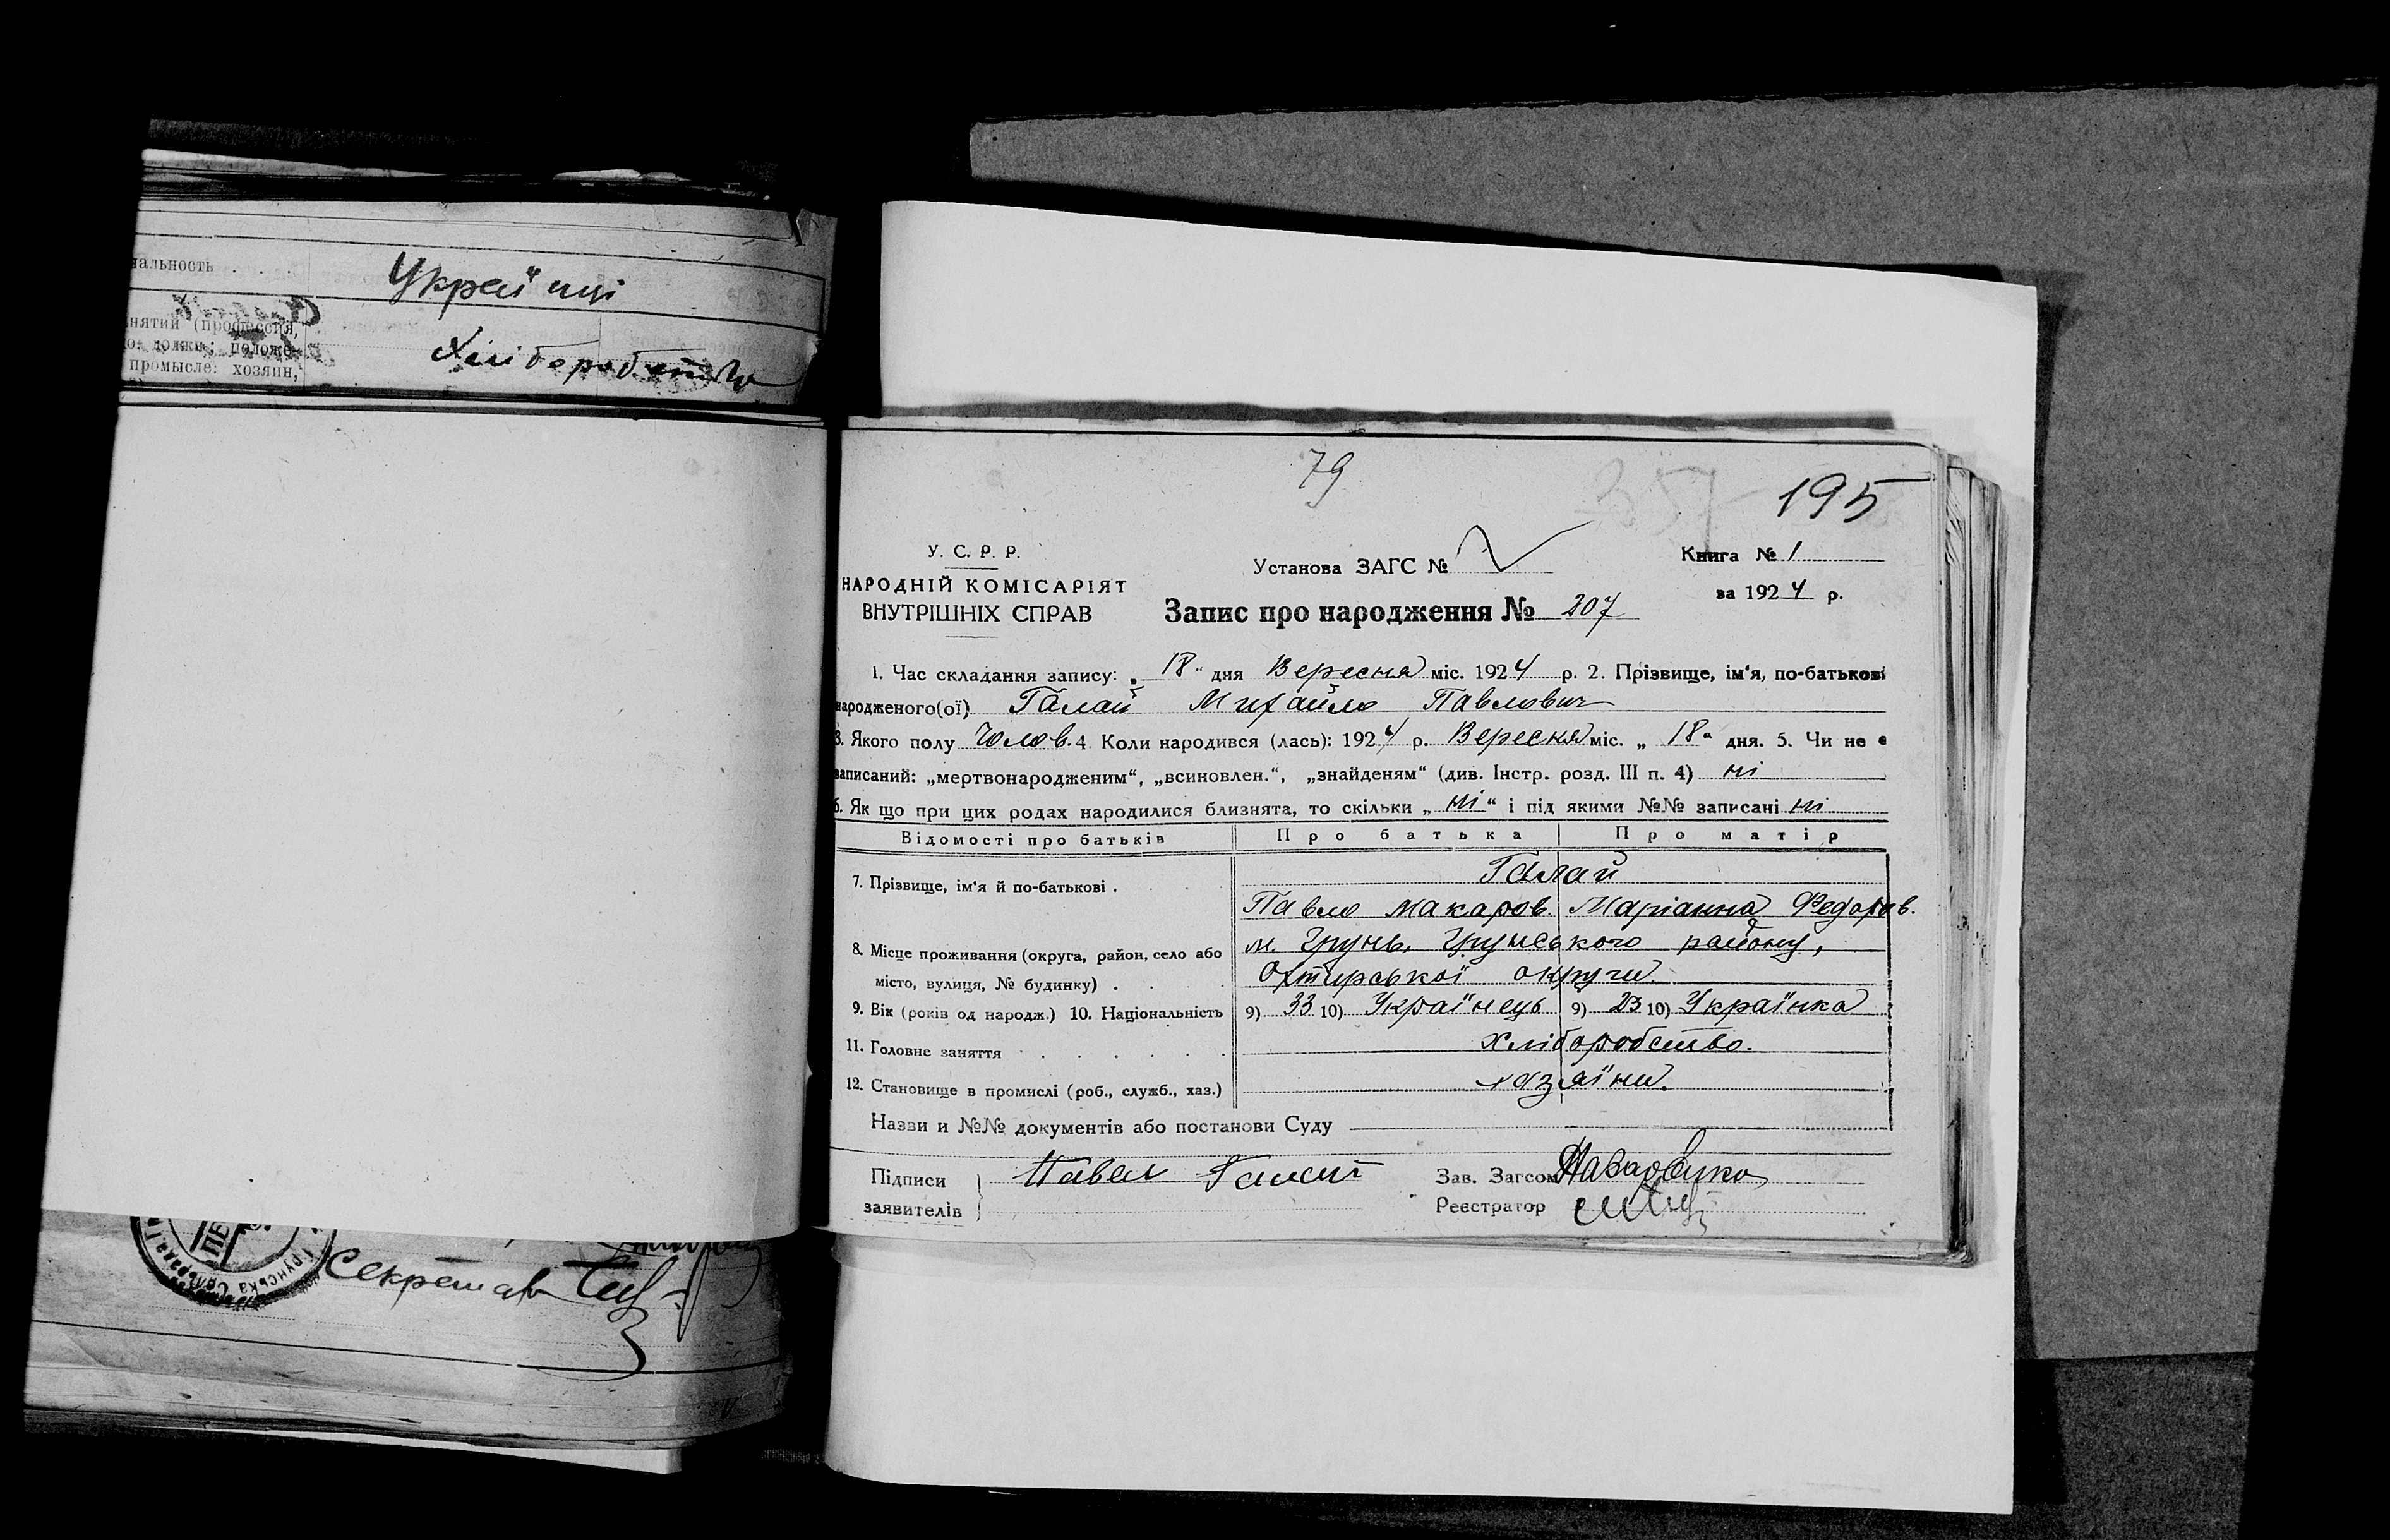 нальность . . .
Українці
нятий (профессия,
о. должн; положе-
промысле: хозяин,
Хліборобство
Грунська Сельрада
Секретар
79
357
195
У. С. Р. Р.
НАРОДНІЙ КОМІСАРІЯТ
ВНУТРІШНІХ СПРАВ
Установа ЗАГС №
Книга № 1
за 1924 р.
Запис про народження № 207
1. Час складання запису: „ 18 " дня Вересня міс. 1924 р. 2. Прізвище, ім'я, по-батькові
народженого(ої) Галай Михайло Павлович
3. Якого полу Чолов. 4. Коли народився (лась): 1924 р. Вересня міс. „ 18 " дня. 5. Чи не є
записаний: „мертвонародженим“, „всиновлен.“, „знайденям“ (див. Інстр. розд. III п. 4) ні
6. Як що при цих родах народилися близнята, то скільки „ ні “ і під якими №№ записані ні
Відомості про батьків Про батька Про матір
7. Прізвище, ім'я й по-батькові . Галай
Павло Макаров. Маріанна Федоров.
8. Місце проживання (округа, район, село або м. Грунь, Грунського району,
місто, вулиця, № будинку) . Охтирської округи.
9. Вік (років од народж.) 10. Національність 9) 33 10) Українець 9) 23 10) Українка
11. Головне заняття . . . . . . Хліборобство.
12. Становище в промислі (роб., служб., хаз.) хазяїни.
Назви и №№ документів або постанови Суду
Підписи Павел Галай Зав. Загсом
заявителів Реєстратор